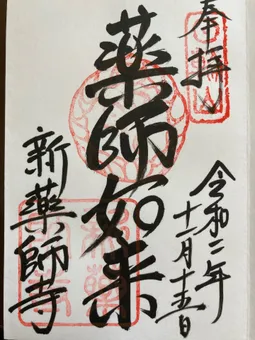 奉拝
令和二年
十一月十五日
薬師如来
新薬師寺